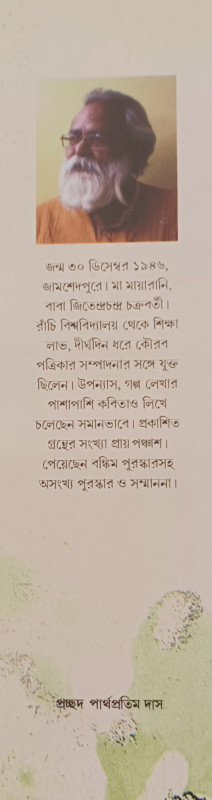 জন্ম ৩০ ডিসেম্বর ১৯৪৬,
জামশেদপুরে। মা মায়ারানি,
বাবা জিতেন্দ্রচন্দ্র চক্রবর্তী।
রাঁচি বিশ্ববিদ্যালয় থেকে শিক্ষা
লাভ, দীর্ঘদিন ধরে কৌরব
পত্রিকার সম্পাদনার সঙ্গে যুক্ত
ছিলেন। উপন্যাস, গল্প লেখার
পাশাপাশি কবিতাও লিখে
চলেছেন সমানভাবে। প্রকাশিত
গ্রন্থের সংখ্যা প্রায় পঞ্চাশ।
পেয়েছেন বঙ্কিম পুরস্কারসহ
অসংখ্য পুরস্কার ও সম্মাননা।
প্রচ্ছদ পার্থপ্রতিম দাস